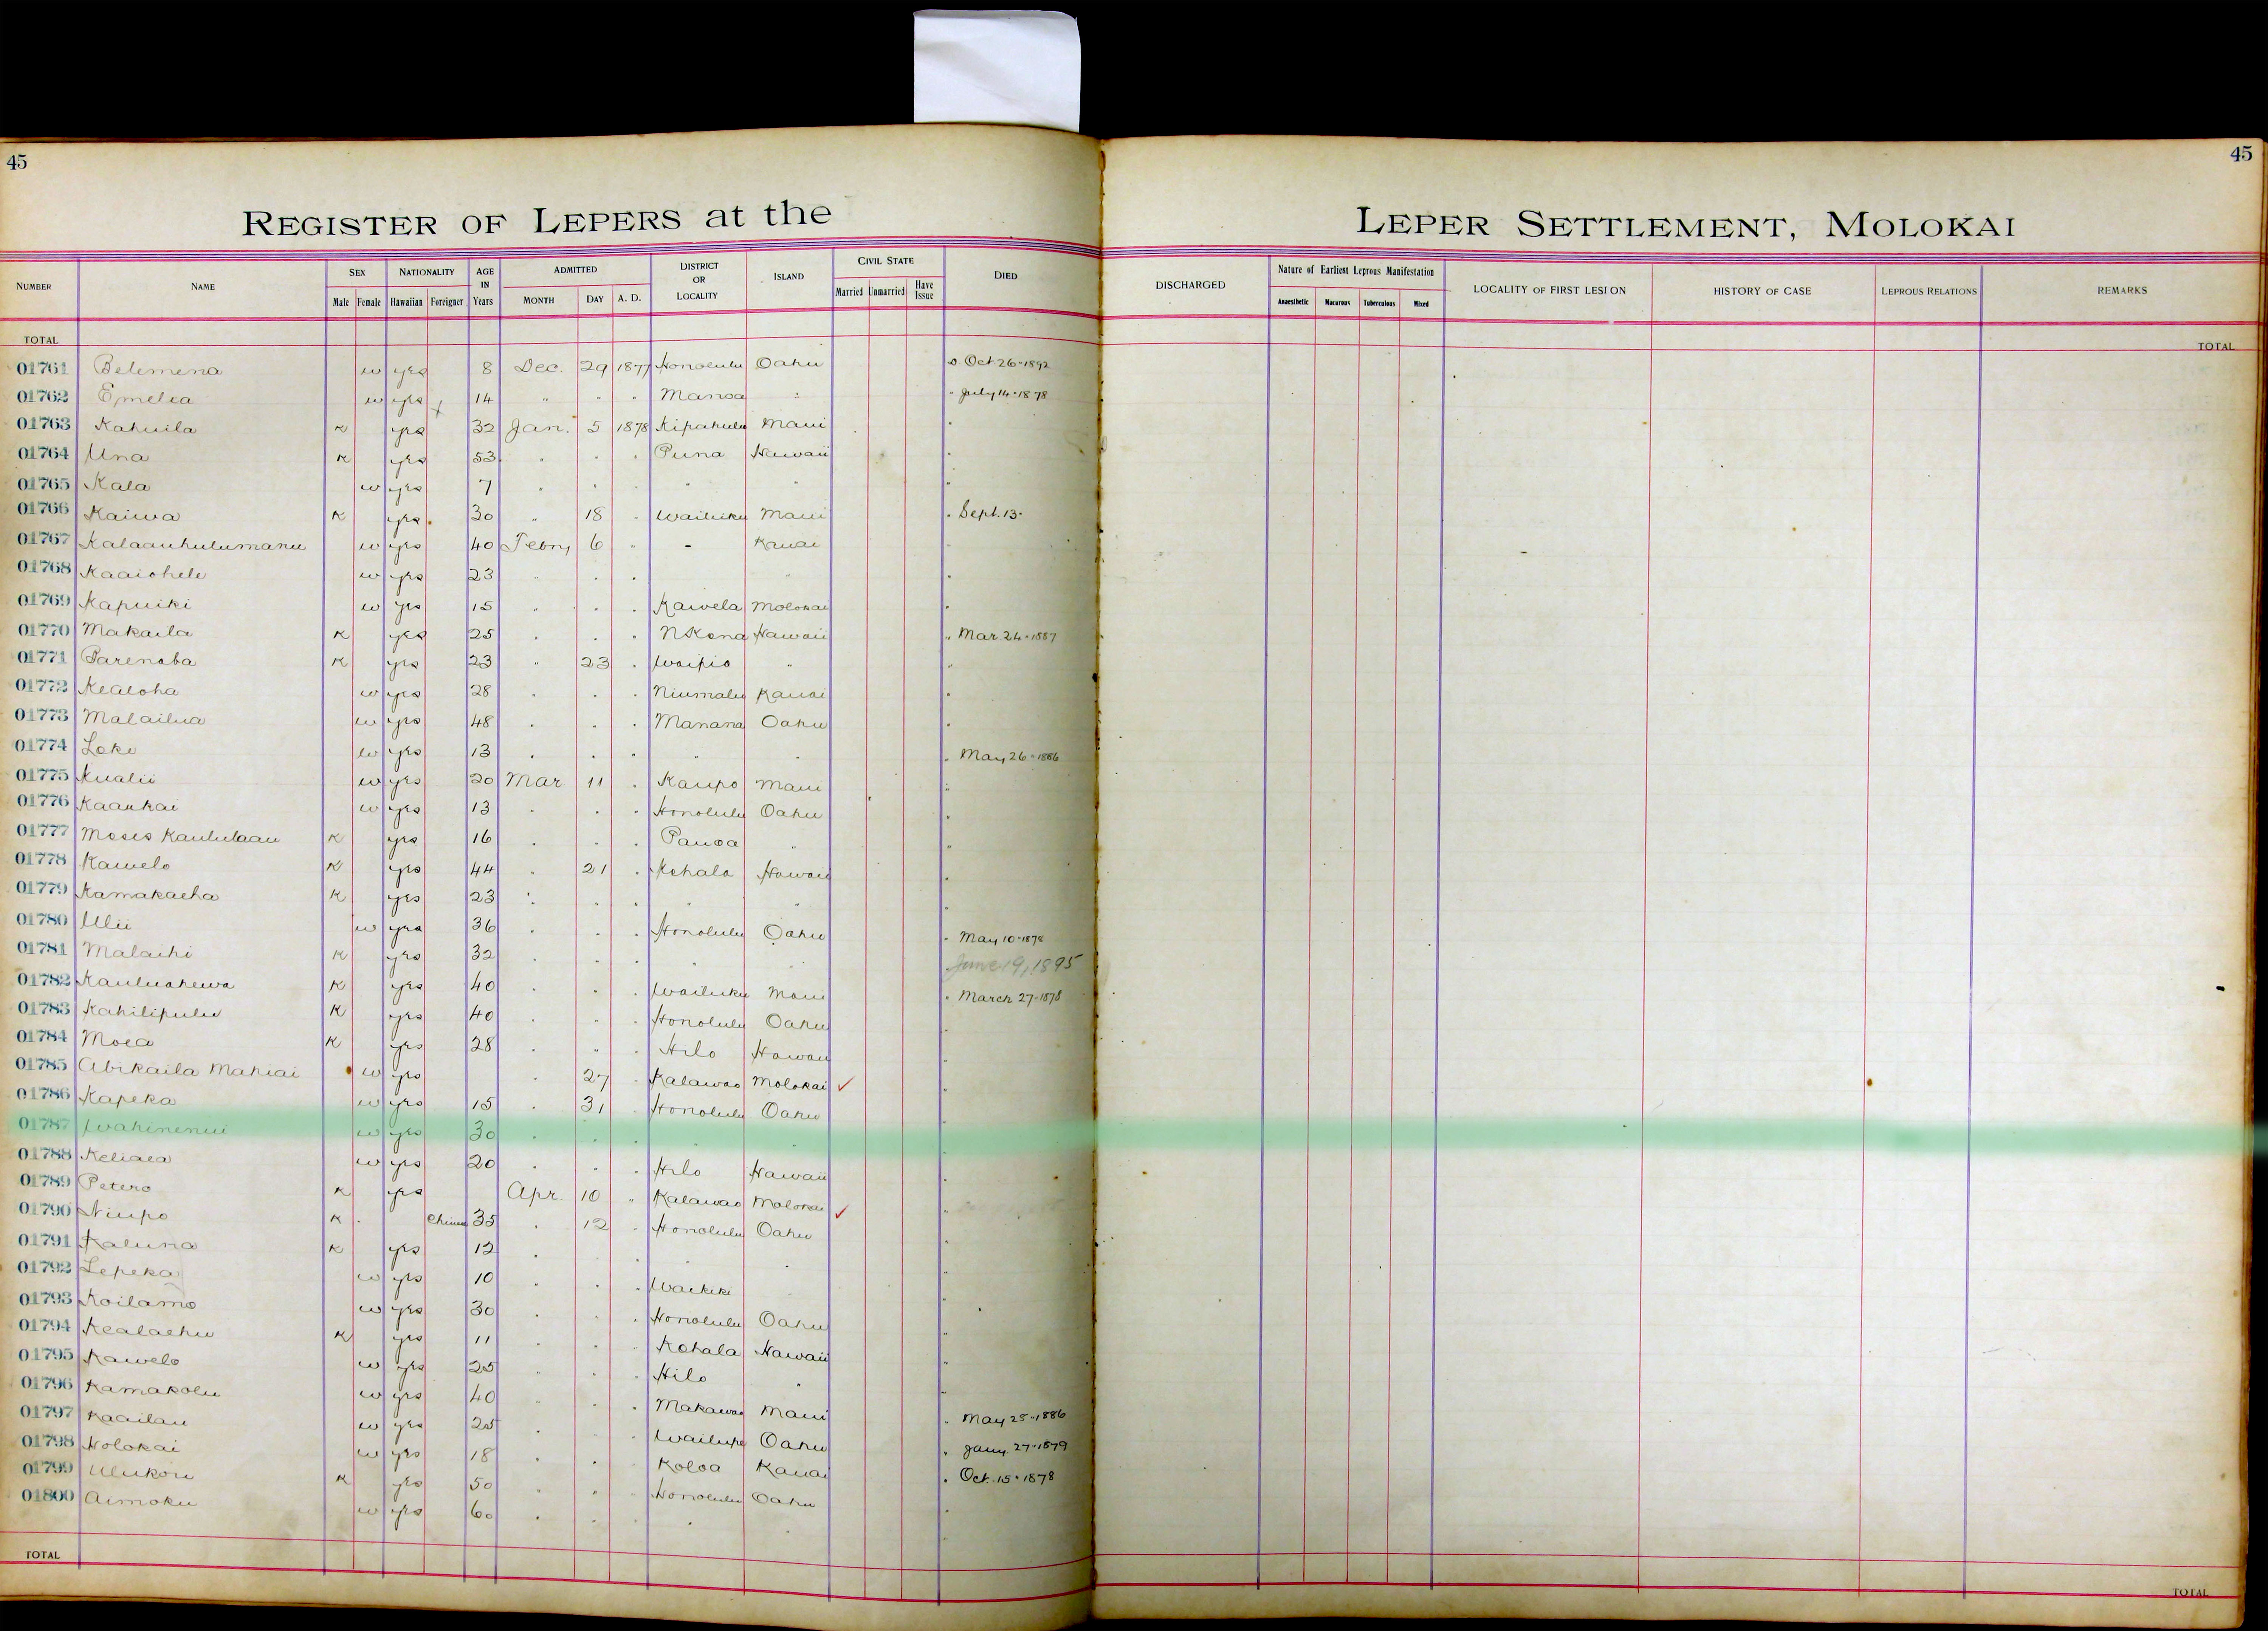 45
45
REGISTER OF LEPERS at the LEPER SETTLEMENT, MOLOKAI
NUMBER NAME SEX NATIONALITY AGE IN Years ADMITTED DISTRICT OR LOCALITY ISLAND CIVIL STATE DIED DISCHARGED Nature of Earliest Leprous Manifestation LOCALITY OF FIRST LESION HISTORY OF CASE LEPROUS RELATIONS REMARKS
Male Female Hawaiian Foreigner MONTH DAY A. D. Married Unmarried Have Issue Anaesthetic Macurous Tuberculous Mixed
TOTAL TOTAL
01761 Belemena w yes 8 Dec. 29 1877 Honolulu Oahu D. Oct 26-1892
01762 Emelia w yes 14 " " " Manoa " " July 14-1878
01763 Kahuila K yes 32 Jan. 5 1878 Kipahulu Maui "
01764 Una K yes 53 " " " Puna Hawaii "
01765 Kala w yes 7 " " " " " "
01766 Kaiwa K yes 30 " 18 " Wailuku Maui " Sept. 13-
01767 Kalaauhulumanu w yes 40 Febry 6 " - Kauai "
01768 Kaaiohele w yes 23 " " " " "
01769 Kapuiki w yes 15 " " " Kawela Molokai "
01770 Makaila K yes 25 " " " N Kona Hawaii " Mar. 24-1887
01771 Parenaba K yes 23 " 23 " Waipio " "
01772 Kealoha w yes 28 " " " Niumalu Kauai "
01773 Malailua w yes 48 " " " Manana Oahu "
01774 Loke w yes 13 " " " " " " May 26-1886
01775 Kualii w yes 20 Mar 11 " Kaupo Maui "
01776 Kaaukai w yes 13 " " " Honolulu Oahu "
01777 Moses Kaululaau K yes 16 " " " Pauoa " "
01778 Kawelo K yes 44 " 21 " Kohala Hawaii "
01779 Kamakaeha K yes 23 " " " " " "
01780 Ulii w yes 36 " " " Honolulu Oahu " May 10-1878
01781 Malaihi K yes 32 " " " " " June 19, 1895
01782 Kauluahewa K yes 40 " " " Wailuku Maui " March 27-1878
01783 Kahilipulu K yes 40 " " " Honolulu Oahu "
01784 Moea K yes 28 " " " Hilo Hawaii "
01785 Abikaila Mahiai w yes " 27 " Kalawao Molokai ✓ "
01786 Kapeka w yes 15 " 31 " Honolulu Oahu "
01787 Wahinenui w yes 30 " " " " " "
01788 Keliaea w yes 20 " " " Hilo Hawaii "
01789 Petero K yes Apr. 10 " Kalawao Molokai ✓ "
01790 Niupo K Chinese 35 " 12 " Honolulu Oahu "
01791 Kaluna K yes 12 " " " " " "
01792 Lepeka w yes 10 " " " Waikiki " "
01793 Koilamo w yes 30 " " " Honolulu Oahu "
01794 Kealaehu K yes 11 " " " Kohala Hawaii "
01795 Kawelo w yes 25 " " " Hilo " "
01796 Kamakolu w yes 40 " " " Makawao Maui " May 25-1886
01797 Kaailau w yes 25 " " " Wailupe Oahu " Jany. 27-1879
01798 Holokai w yes 18 " " " Koloa Kauai " Oct. 15-1878
01799 Ulukou K yes 50 " " " Honolulu Oahu "
01800 Aimoku w yes 60 " " " " " "
TOTAL TOTAL